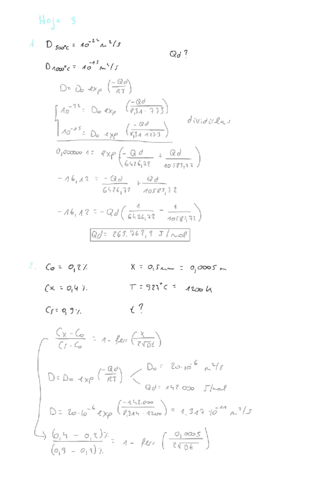 Hoja 3
1. D500ºC = 10^-22 m²/s
Qd?
D1000ºC = 10^-15 m²/s
D = D₀ exp (-Qd/RT)
10^-22 = D₀ exp (-Qd/8,31·773)
dividirlas
10^-15 = D₀ exp (-Qd/8,31·1273)
0,0000001 = exp (-Qd/6426,72 + Qd/10583,72)
-16,12 = -Qd/6426,72 + Qd/10583,72
-16,12 = -Qd (1/6426,72 - 1/10583,72)
Qd = 263.767,9 J/mol
2. C₀ = 0,2% X = 0,5mm = 0,0005 m
Cx = 0,4% T = 927ºC = 1200 K
Cs = 0,9% t?
(Cx - C₀)/(Cs - C₀) = 1 - ferr (x/2√Dt)
D = D₀ exp (-Qd/RT) D₀ = 20·10^-6 m²/s
Qd = 142.000 J/mol
D = 20·10^-6 exp (-142.000/8,314·1200) = 1,317·10^-11 m²/s
(0,4 - 0,2)%/(0,9 - 0,2)% = 1 - ferr (0,0005/2√Dt)